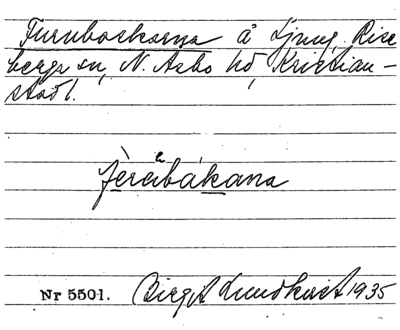 Furubackarna å Ljung, Rise
bergs sn, N. Åsbo hd, Kristian-
stad l.
Nr 5501. Birgit Lundkvist 1935